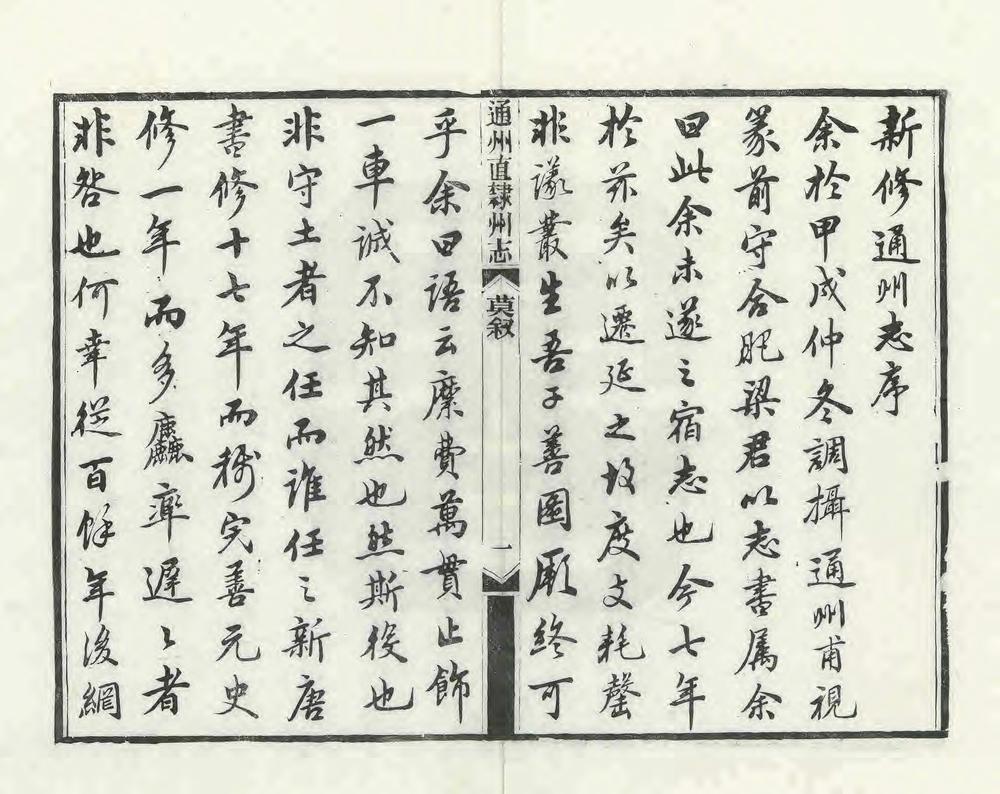 新修通州志序
余於甲戌仲冬調攝通州甫視
篆前守合肥梁君以志書属余
曰此余未遂之宿志也今七年
於茲矣以遷延之故度支耗罄
非議叢生吾子善圖厥終可
通州直隸州志 莫叙 一
乎余曰語云縻費萬貫止飾
一車誠不知其然也然斯役也
非守土者之任而誰任之新唐
書修十七年而称完善元史
修一年而多麤率遲〻者
非咎也何幸從百餘年後網